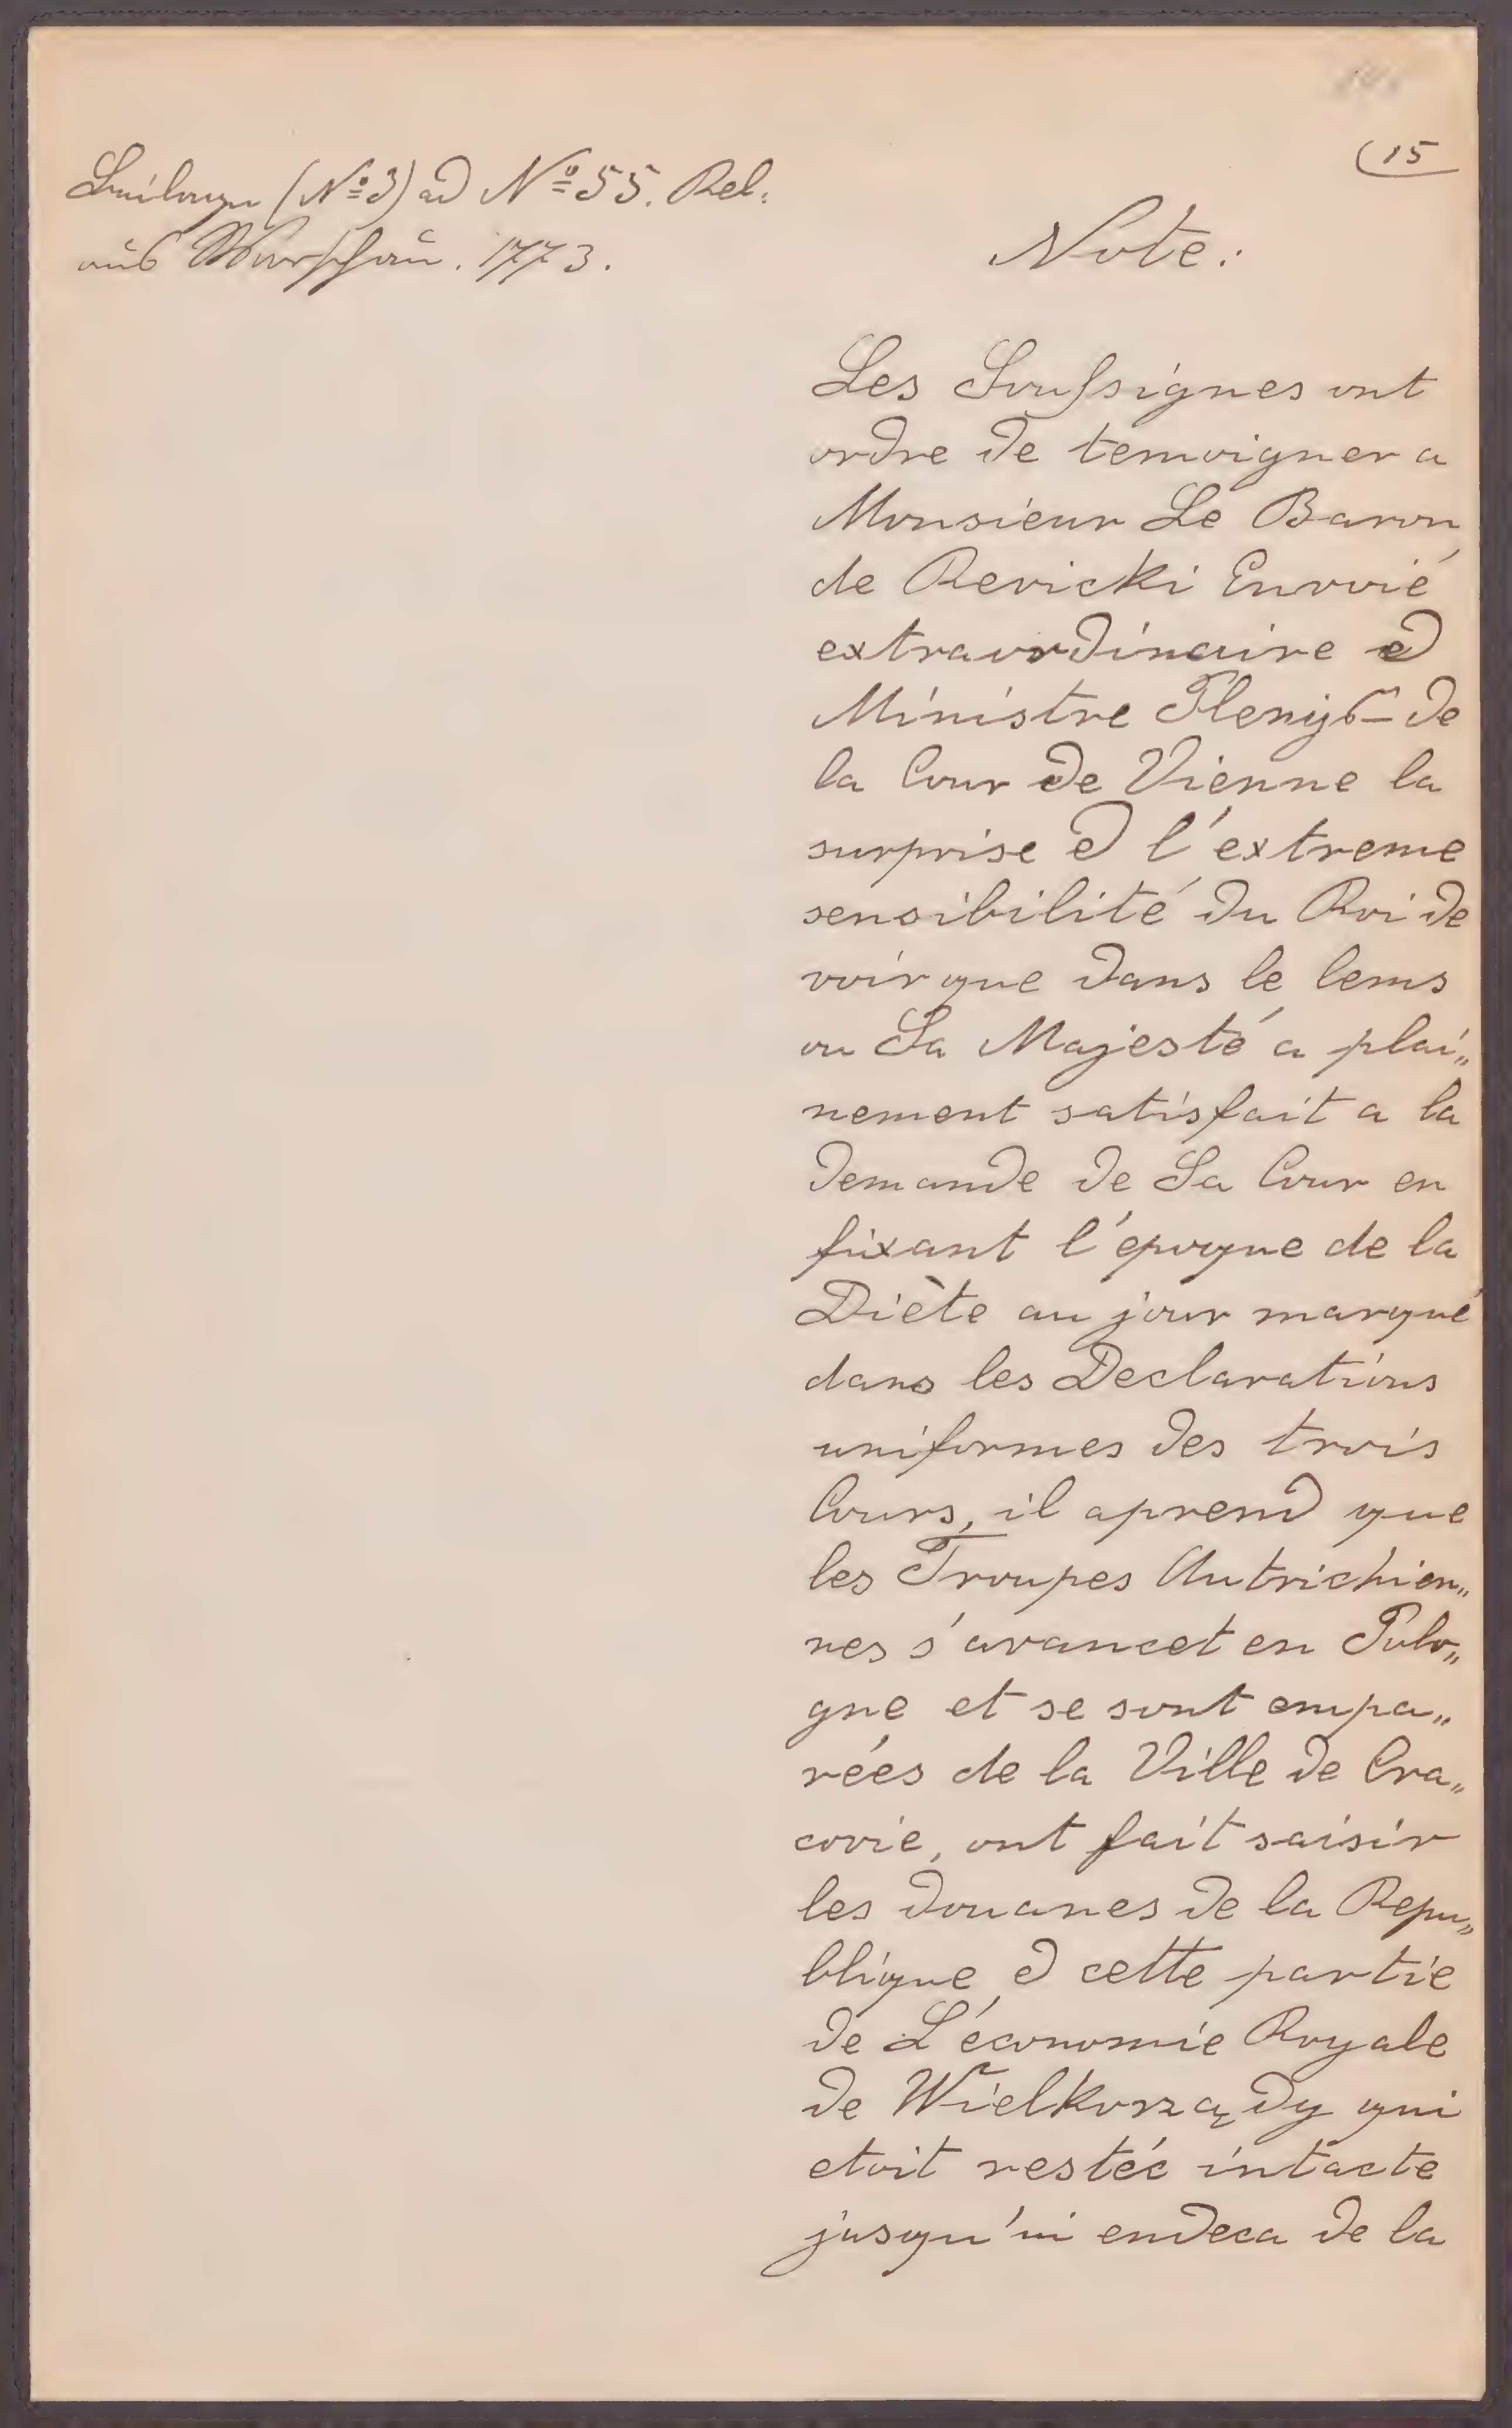 15
Beilage (Nº 3) ad Nº 55. Rel:
aus Warschau. 1773.
Note:
Les Soussignes ont
ordre de temoigner a
Monsieur Le Baron
de Revicki Envoié
extraordinaire et
Ministre de
la Cour de Vienne la
surprise et l'extreme
sensibilité du Roi de
voir que dans le tems
ou Sa Majesté a plai„
nement satisfait a la
demande de Sa Cour en
fixant l'epoque de la
Diète au jour marqué
dans les Declarations
uniformes des trois
Cours, il aprend que
les Troupes Autrichien„
nes s'avancet en Polo„
gne et se sont empa„
rées de la Ville de Cra„
covie, ont fait saisir
les douanes de la Repu„
blique et cette partie
de L'économie Royale
de Wielkorządy qui
etoit restée intacte
jusqu'ici endeca de la